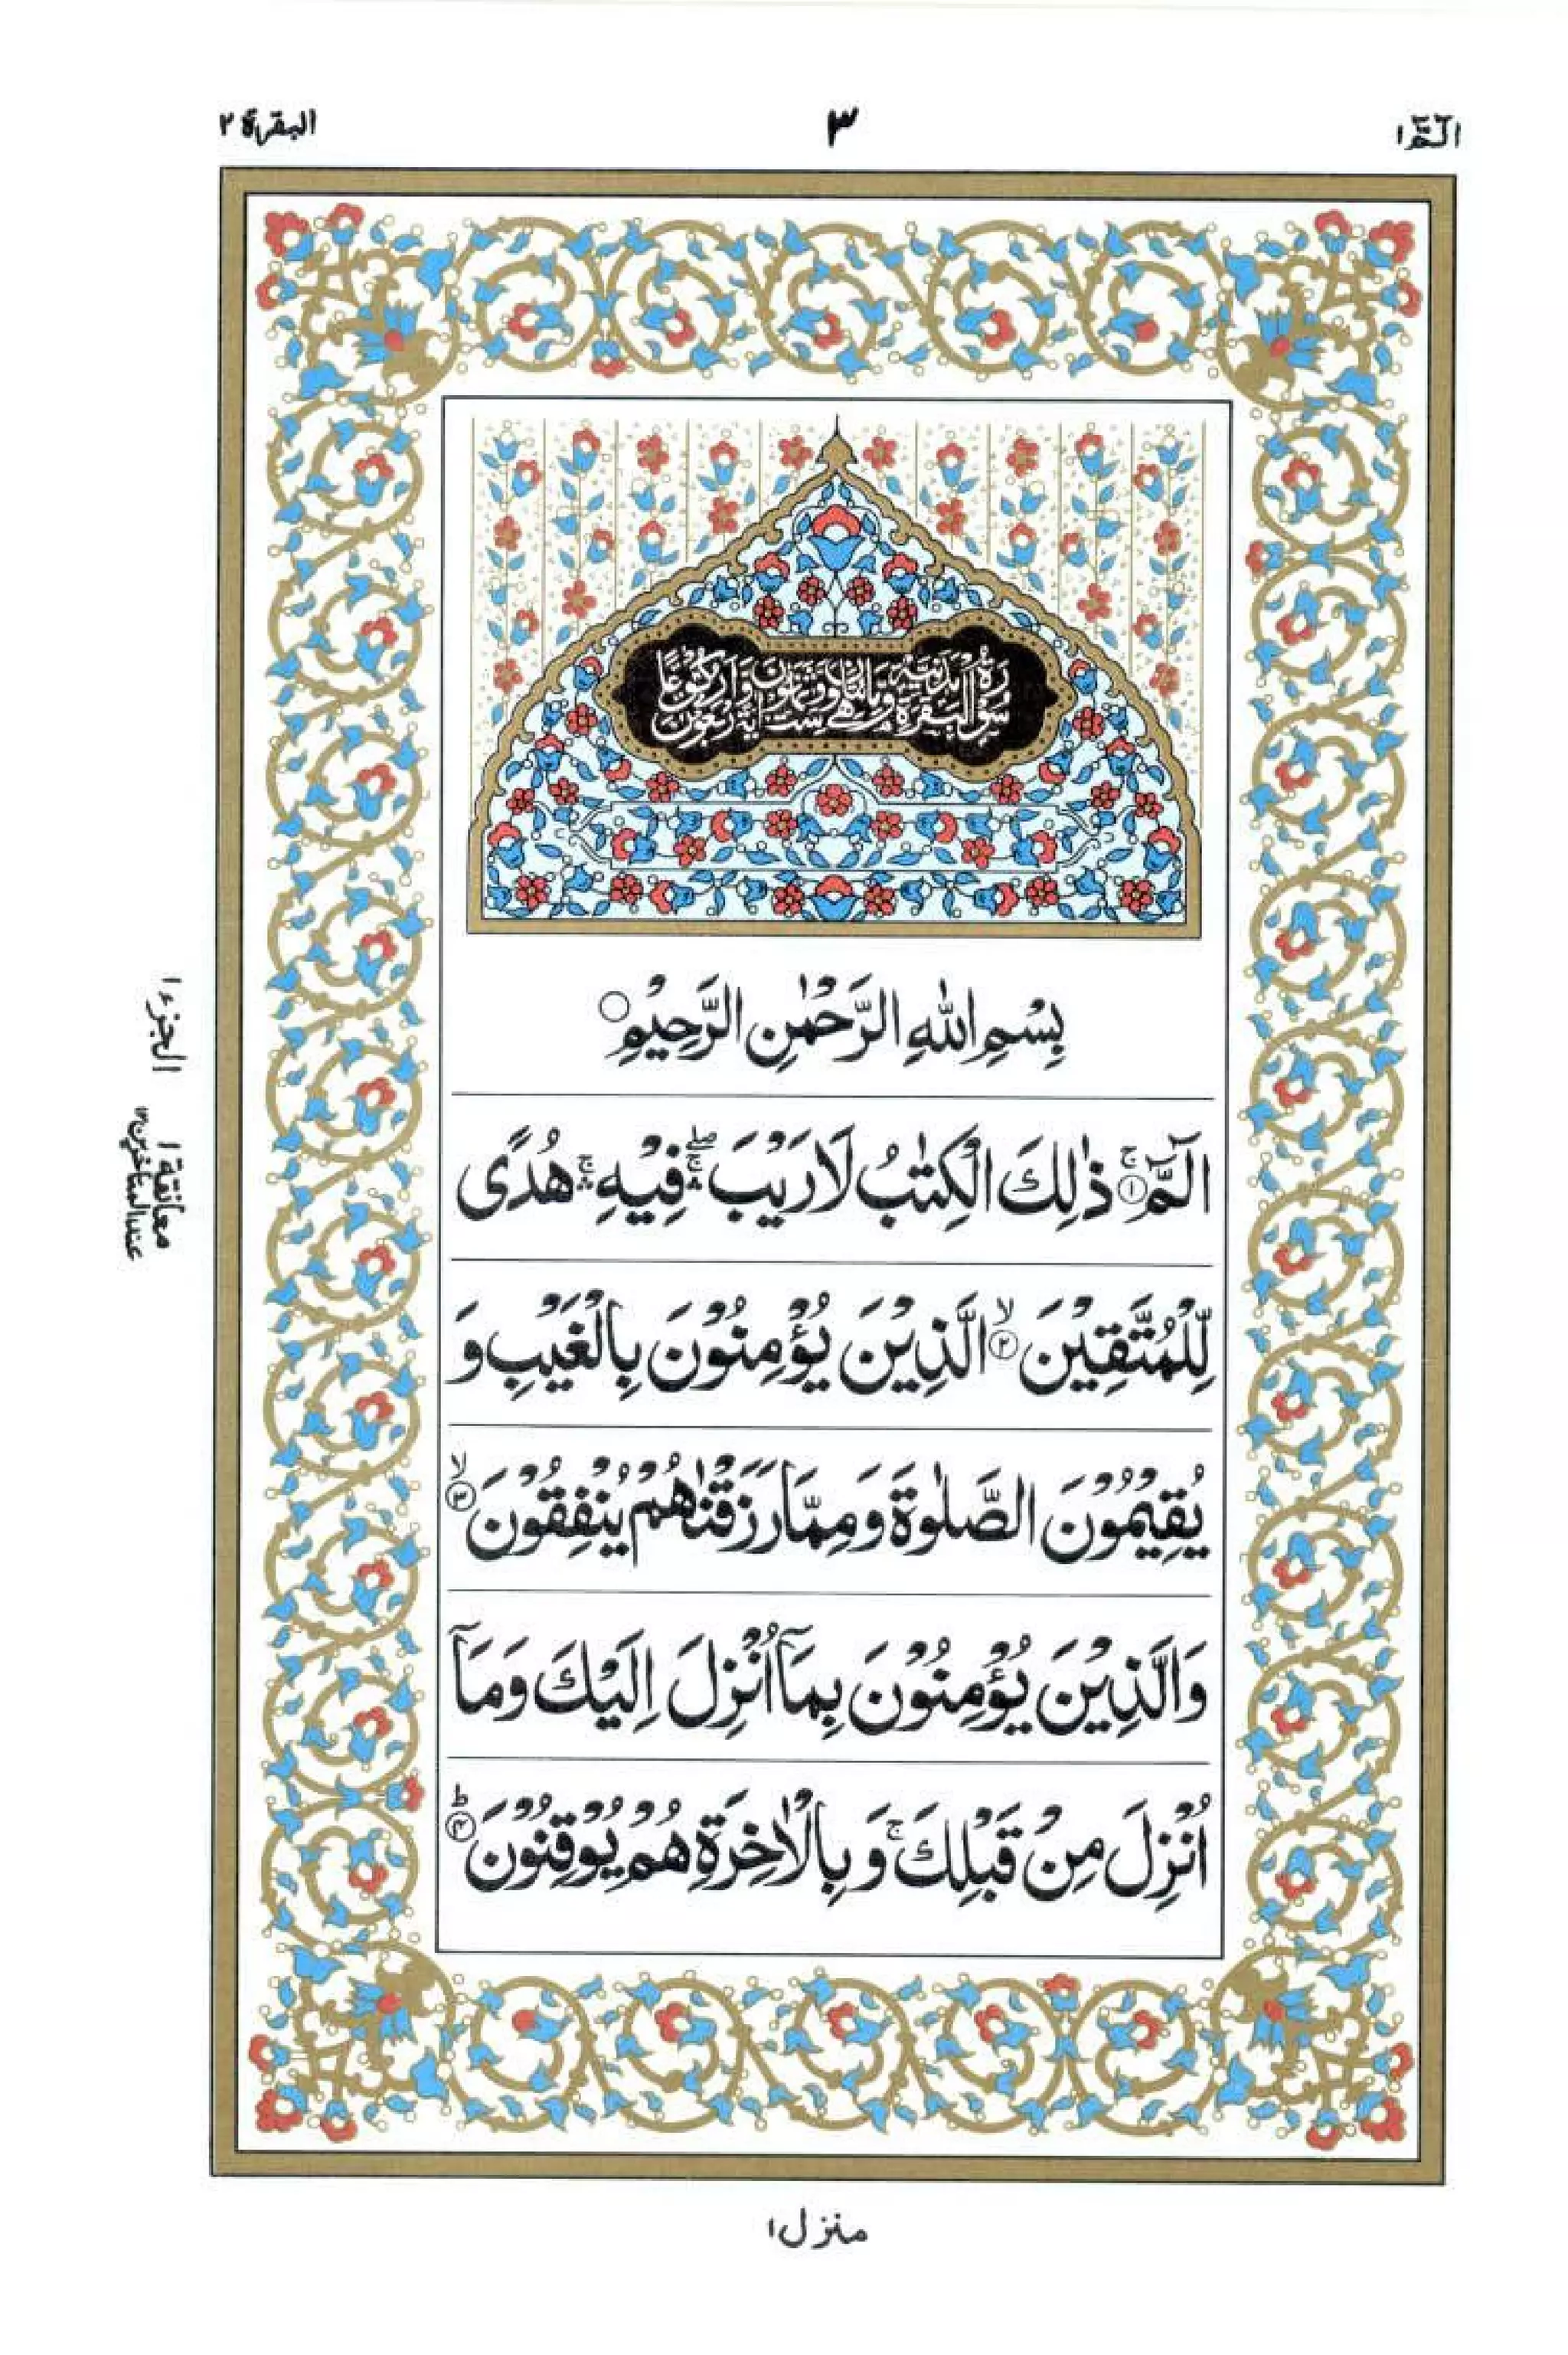 الٓمّٓ ١
٣
البقرة ٢
سورة البقرة مدنية وهي مائتان وست وثمانون آية وأربعون ركوعا
بِسْمِ اللّٰهِ الرَّحْمٰنِ الرَّحِيْمِ ○
الٓمّٓ ۚ‏﴿۱﴾ ذٰلِكَ الْكِتٰبُ لَا رَيْبَ ۛۖۚ فِيْهِ ۛۚ هُدًى
لِّلْمُتَّقِيْنَ ۙ‏﴿۲﴾ الَّذِيْنَ يُؤْمِنُوْنَ بِالْغَيْبِ وَ
يُقِيْمُوْنَ الصَّلٰوةَ وَمِمَّا رَزَقْنٰهُمْ يُنْفِقُوْنَ ۙ‏﴿۳﴾
وَالَّذِيْنَ يُؤْمِنُوْنَ بِمَآ اُنْزِلَ اِلَيْكَ وَمَآ
اُنْزِلَ مِنْ قَبْلِكَ ۚ وَ بِالْاٰخِرَةِ هُمْ يُوْقِنُوْنَ ؕ‏﴿۴﴾
الجزء ١
معانقة ١
عند المتاخرين ١٢
منزل ١